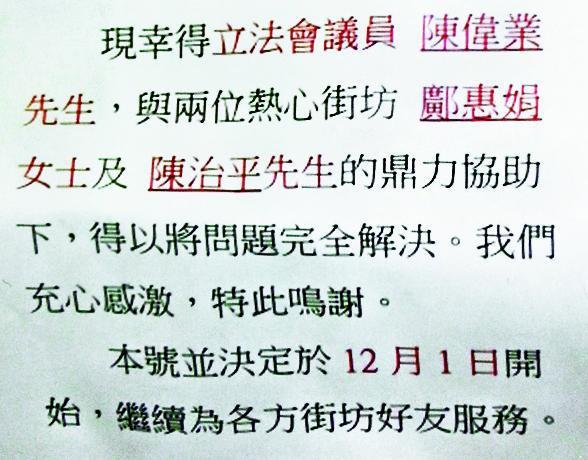 現幸得立法會議員 陳偉業
先生，與兩位熱心街坊 鄺惠娟
女士及 陳治平先生的鼎力協助
下，得以將問題完全解決。我們
充心感激，特此鳴謝。
本號並決定於 12 月 1 日開
始，繼續為各方街坊好友服務。